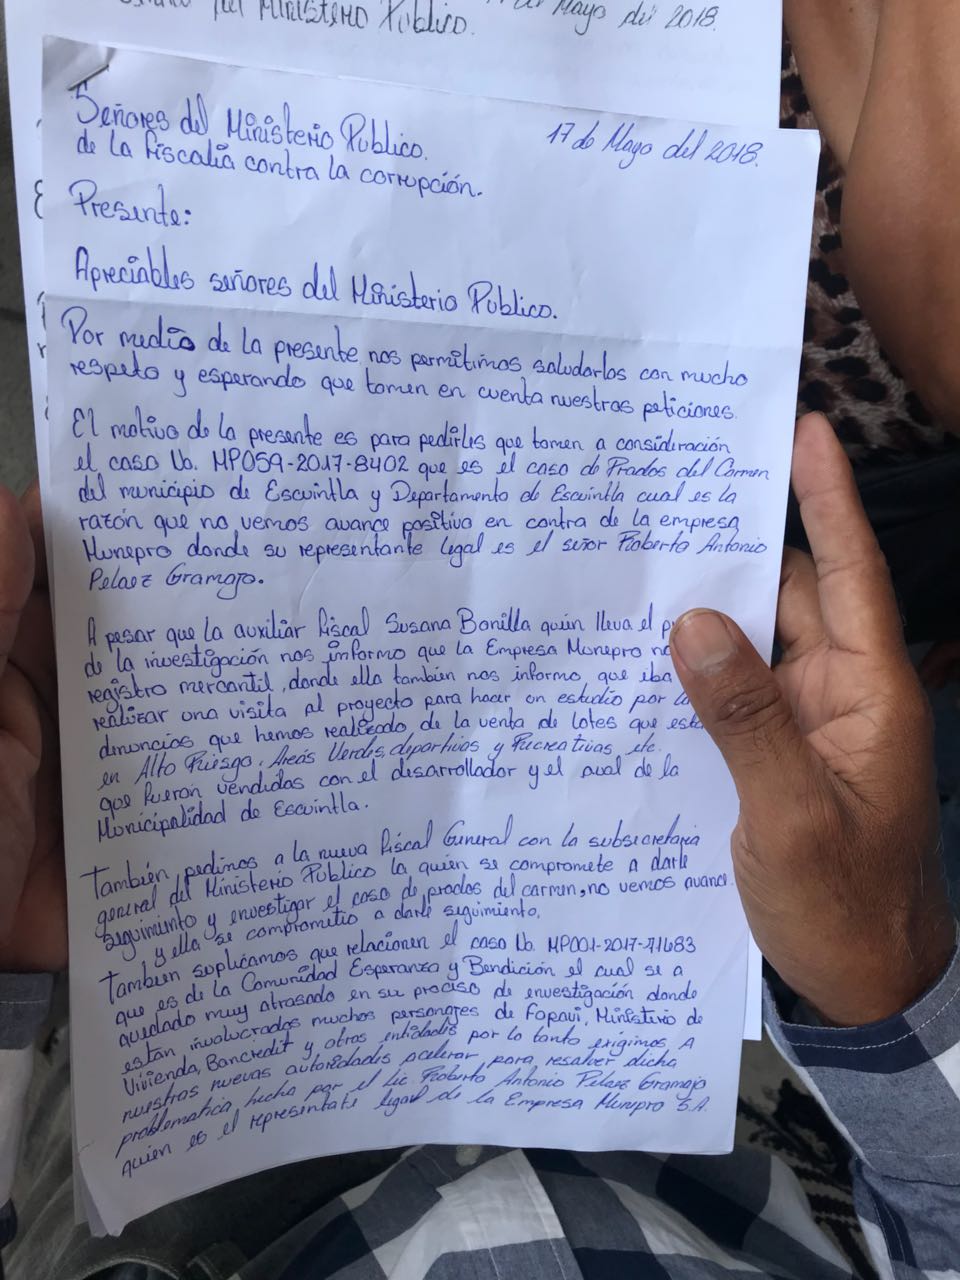 Ministerio Público.
Mayo del 2018.
Señores del Ministerio Publico.
17 de Mayo del 2018.
de la Fiscalía contra la corrupción.
Presente:
Apreciables señores del Ministerio Publico.
Por medio de la presente nos permitimos saludarlos con mucho
respeto y esperando que tomen en cuenta nuestras peticiones.
El motivo de la presente es para pedirles que tomen a consideración
el caso No. MP059-2017-8402 que es el caso de Prados del Carmen
del municipio de Escuintla y Departamento de Escuintla cual es la
razón que no vemos avance positivo en contra de la empresa
Munepro donde su representante legal es el señor Roberto Antonio
Pelaez Gramajo.
A pesar que la auxiliar fiscal Susana Bonilla quien lleva el
de la investigación nos informo que la Empresa Munepro no
registro mercantil, donde ella también nos informo, que iba
realizar una visita al proyecto para hacer un estudio por
denuncios que hemos realizado de la venta de lotes que
en Alto Riesgo, Areás Verdes, deportivas y Recreativas, etc.
que fueron vendidas con el desarrollador y el aval de la
Municipalidad de Escuintla.
También pedimos a la nueva Fiscal General con la subsecretaria
general del Ministerio Público la quién se compromete a darle
seguimiento y envestigar el caso de prados del carmen, no vemos avance
y ella se comprometio a darle seguimiento.
Tambien suplicamos que relacionen el caso No. MP001-2017-71683
que es de la Comunidad Esperanza y Bendición el cual se a
quedado muy atrasado en su proceso de envestigación donde
estan involucrados muchos personajes de Fopavi, Ministerio de
Vivienda, Bancredit y otras entidades por lo tanto exigimos A
nuestras nuevas autoridades acelerar para resolver dicha
problematica hecha por el Lic. Roberto Antonio Pelaez Gramajo
quien es el represntate legal de la Empresa Munepro S.A.